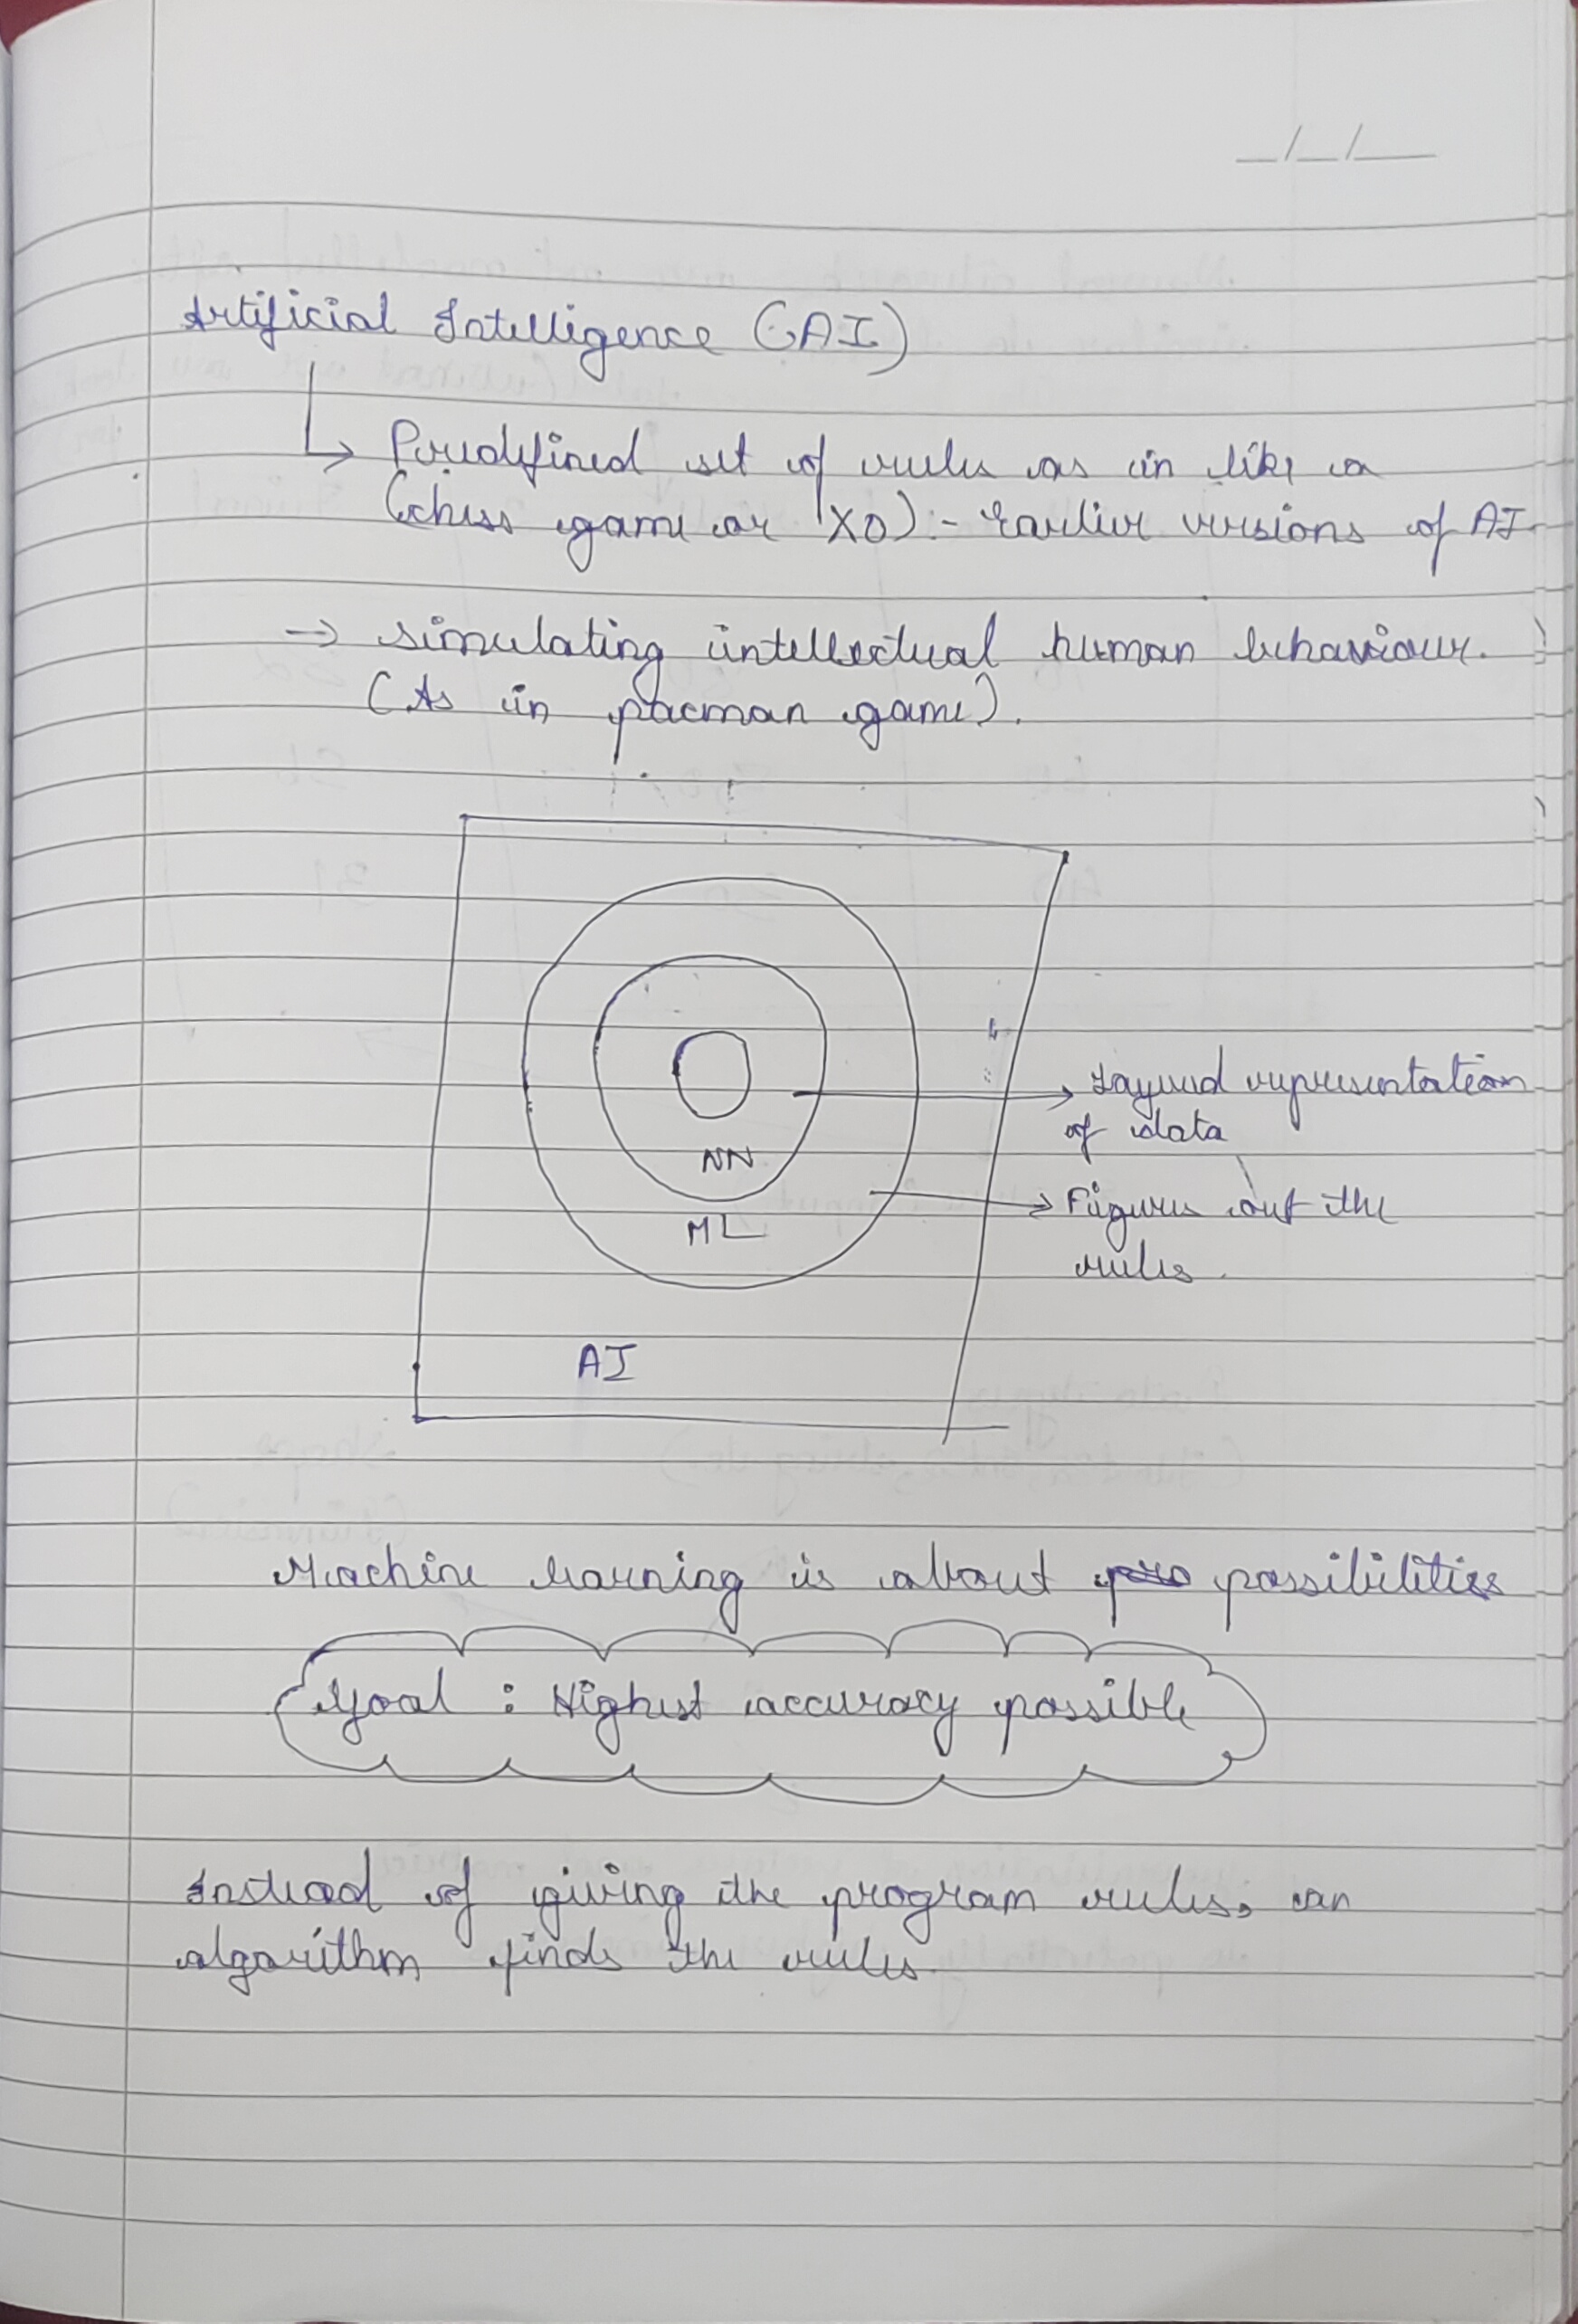 Artificial Intelligence (AI)
Predefined set of rules as in like a
(chess game or XO) :- Earlier versions of AI
→ simulating intellectual human behaviour.
(As in pacman game).
Layered representation
of data
NN
Figures out the
ML
rules.
AI
Machine learning is about possibilities
Goal : Highest accuracy possible
Instead of giving the program rules, an
algorithm finds the rules.